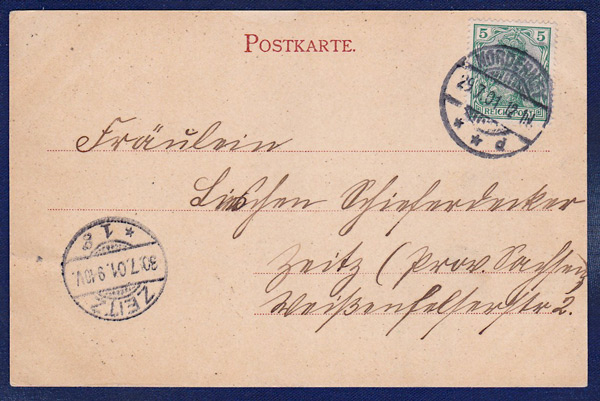 POSTKARTE.
5 5
REICHSPOST
NORDERNEY
29.7.01.
* P *
Fräulein
Lieschen Schieferdecker
Zeitz (Prov. Sachsen)
Weißenfelserstr 2.
* 1 g
30.7.01.9-10V.
ZEITZ